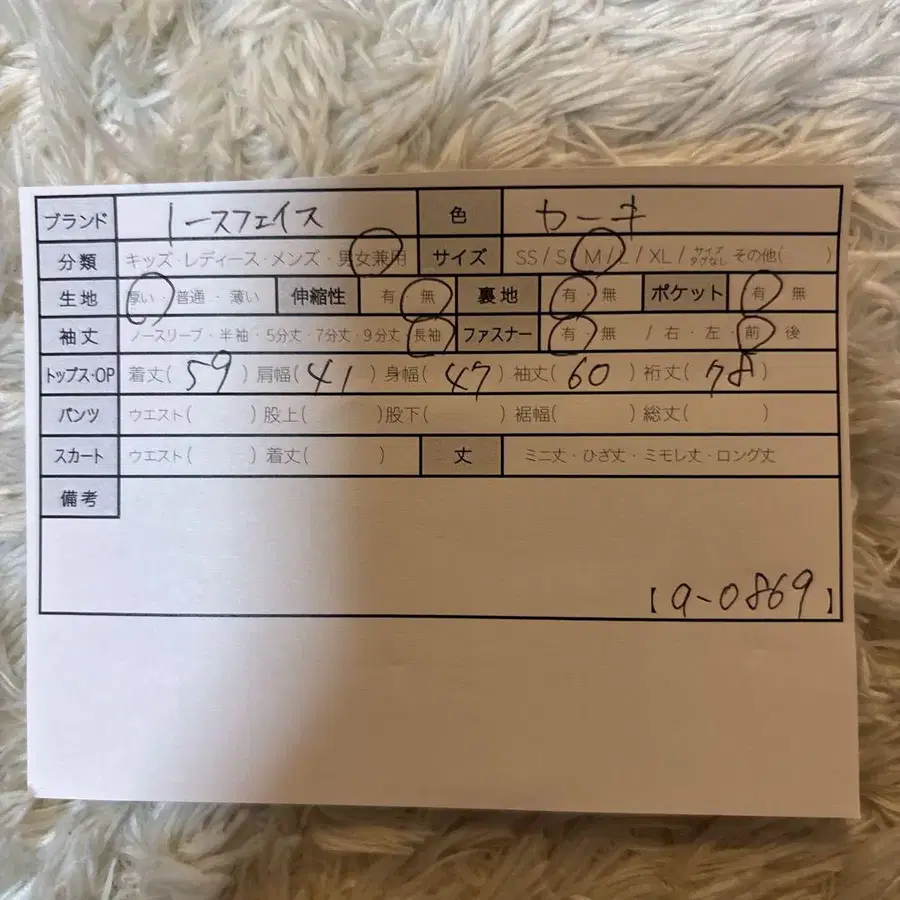 ブランド ノースフェイス 色 カーキ
分類 キッズ・レディース・メンズ・男女兼用 サイズ SS / S / M / L / XL / サイズタグなし その他( )
生地 厚い・普通・薄い 伸縮性 有・無 裏地 有・無 ポケット 有・無
袖丈 ノースリーブ・半袖・5分丈・7分丈・9分丈・長袖 ファスナー 有・無 / 右・左・前・後
トップス・OP 着丈( 59 ) 肩幅( 41 ) 身幅( 47 ) 袖丈( 60 ) 裄丈( 78 )
パンツ ウエスト( ) 股上( ) 股下( ) 裾幅( ) 総丈( )
スカート ウエスト( ) 着丈( ) 丈 ミニ丈・ひざ丈・ミモレ丈・ロング丈
備考
【a-0869】